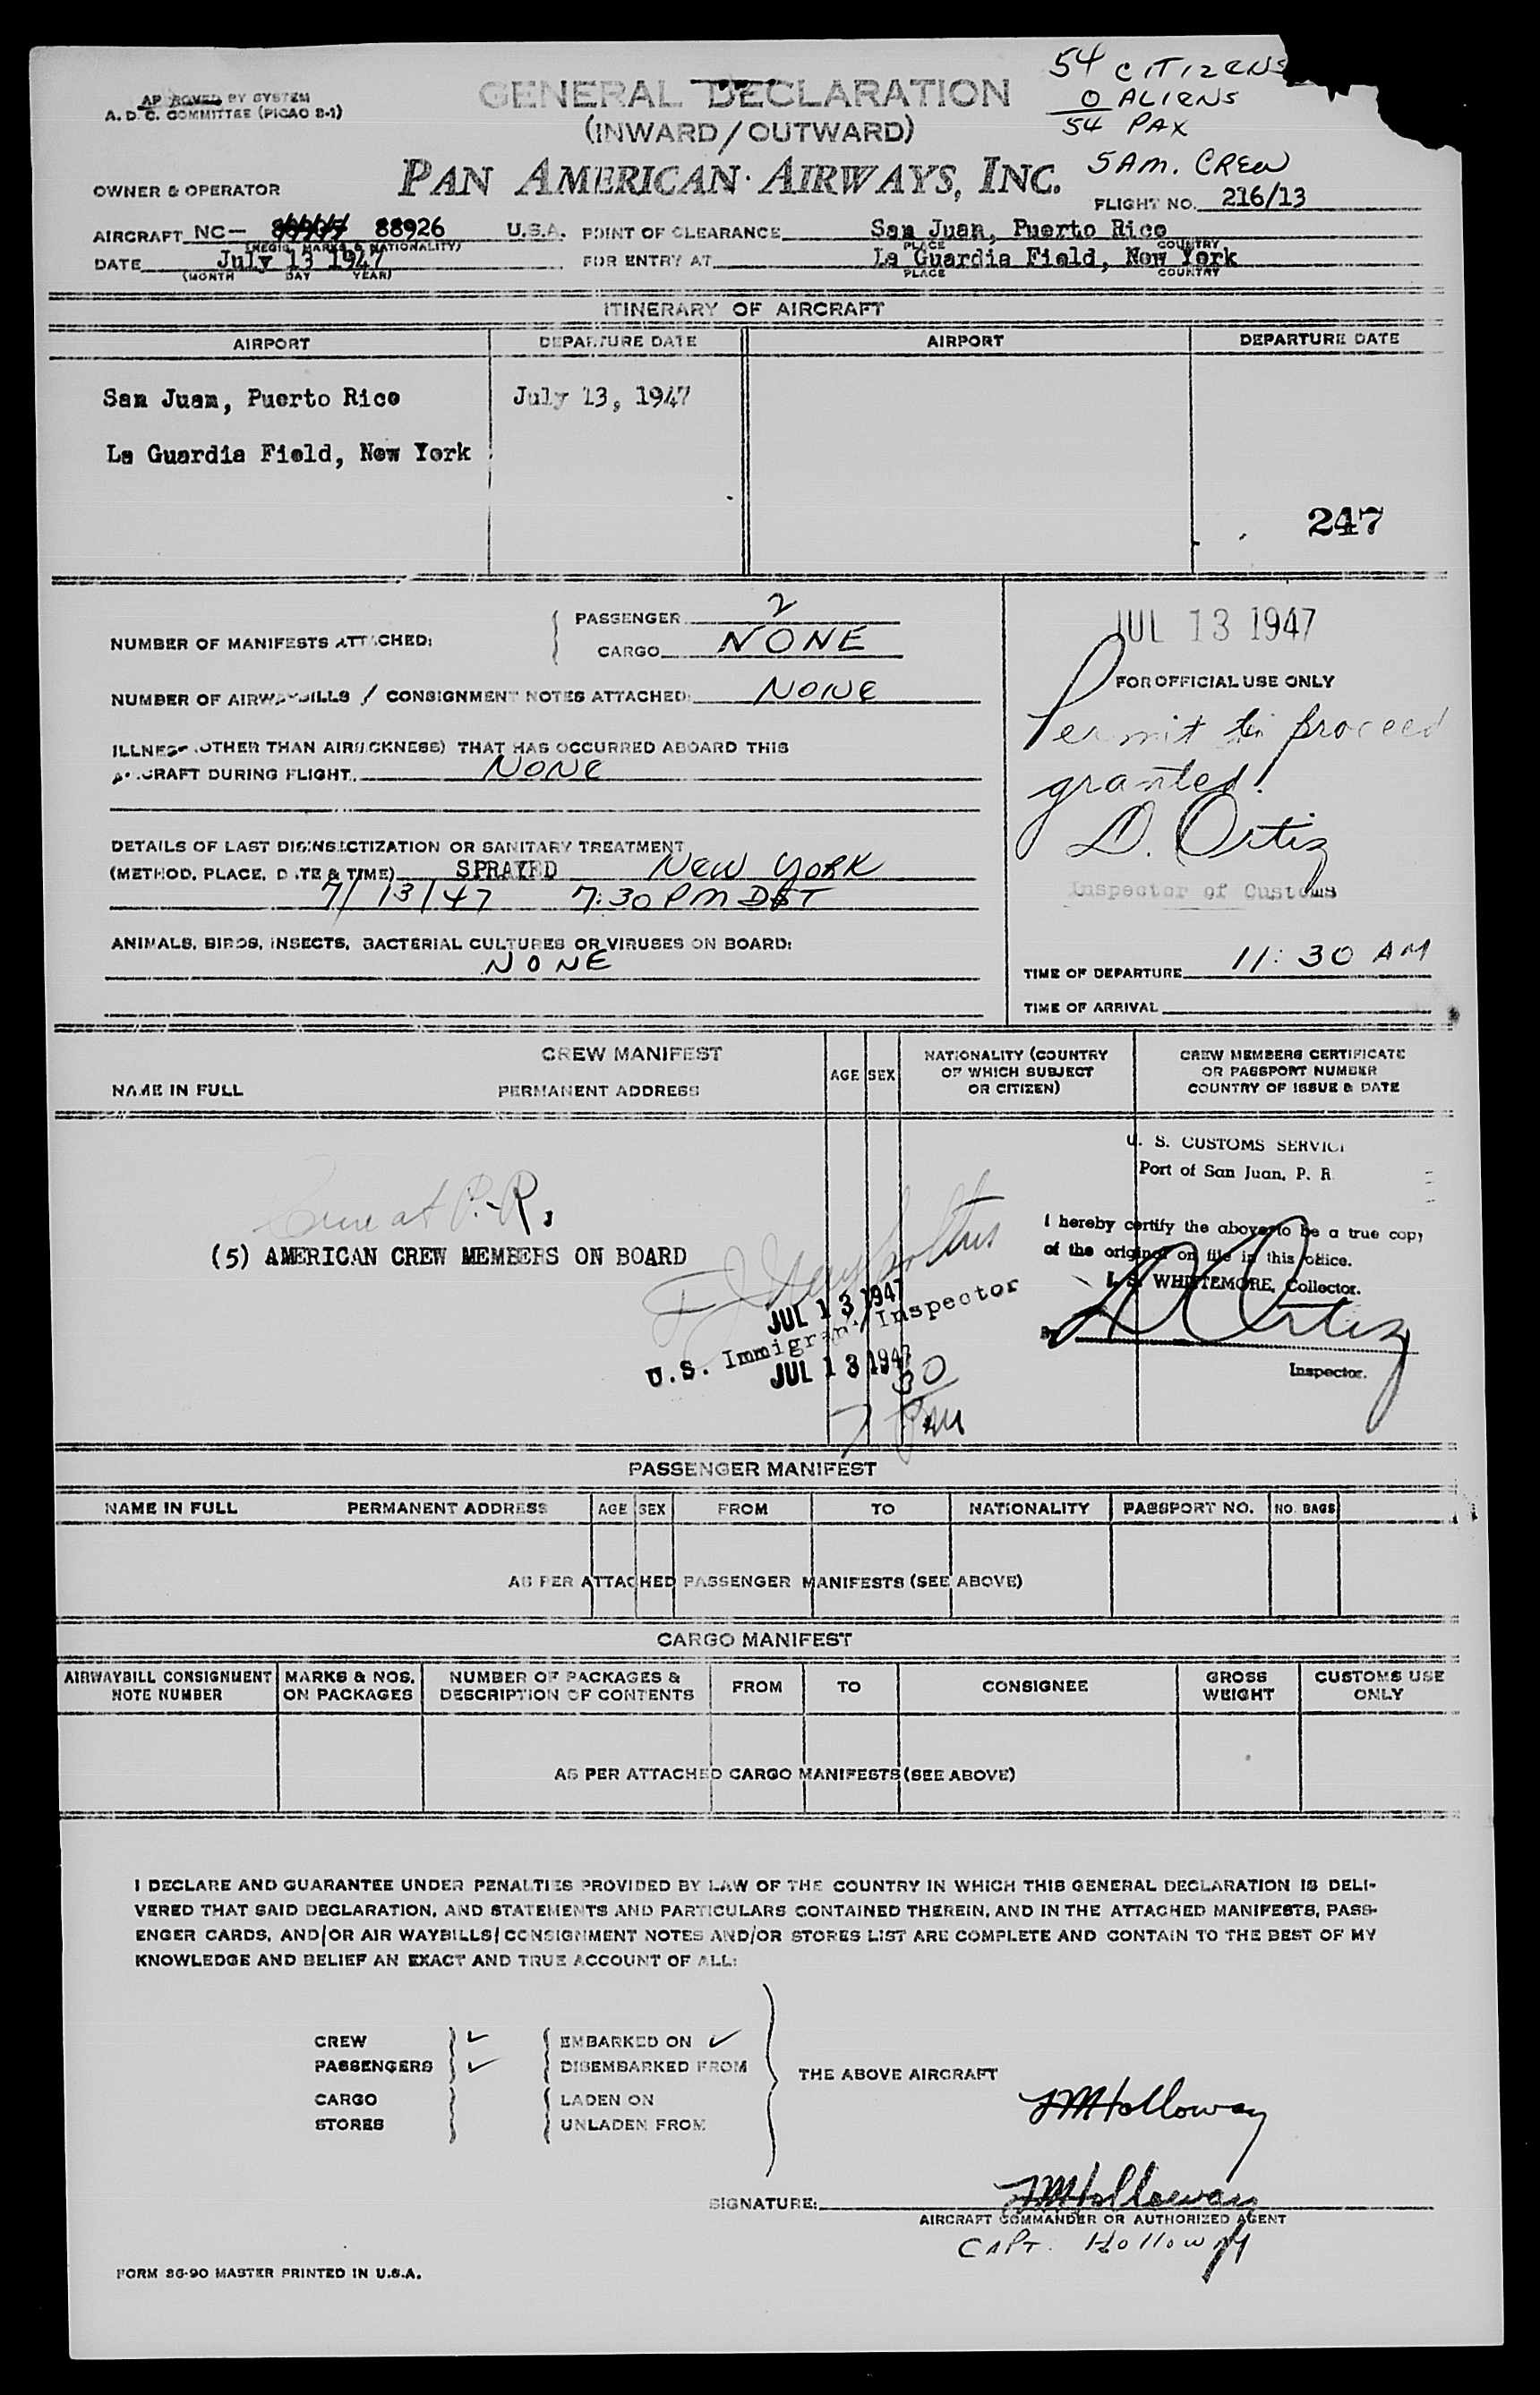 54 CITIZENS
0 ALIENS
54 PAX
5 AM. CREW
APPROVED BY SYSTEM
A. D. C. COMMITTEE (PICAO 8-1)
GENERAL DECLARATION
(INWARD/OUTWARD)
OWNER & OPERATOR
PAN AMERICAN AIRWAYS, INC.
FLIGHT NO. 216/13
AIRCRAFT NC- 88926 U.S.A. POINT OF CLEARANCE San Juan, Puerto Rico
(REGIS. MARKS & NATIONALITY) PLACE COUNTRY
DATE July 13 1947 FOR ENTRY AT La Guardia Field, New York
(MONTH DAY YEAR) PLACE COUNTRY
ITINERARY OF AIRCRAFT
AIRPORT DEPARTURE DATE AIRPORT DEPARTURE DATE
San Juan, Puerto Rico July 13, 1947
La Guardia Field, New York
247
NUMBER OF MANIFESTS ATTACHED: PASSENGER 2
CARGO NONE
NUMBER OF AIRWAYBILLS / CONSIGNMENT NOTES ATTACHED: NONE
ILLNESS (OTHER THAN AIRSICKNESS) THAT HAS OCCURRED ABOARD THIS
AIRCRAFT DURING FLIGHT. NONE
DETAILS OF LAST DISINSECTIZATION OR SANITARY TREATMENT
(METHOD, PLACE, DATE & TIME) SPRAYED NEW YORK
7/13/47 7:30 PM DST
ANIMALS, BIRDS, INSECTS, BACTERIAL CULTURES OR VIRUSES ON BOARD:
NONE
JUL 13 1947
FOR OFFICIAL USE ONLY
Permit to proceed
granted!
D. Ortiz
Inspector of Customs
TIME OF DEPARTURE 11:30 AM
TIME OF ARRIVAL
CREW MANIFEST
NAME IN FULL PERMANENT ADDRESS AGE SEX NATIONALITY (COUNTRY OF WHICH SUBJECT OR CITIZEN) CREW MEMBERS CERTIFICATE OR PASSPORT NUMBER COUNTRY OF ISSUE & DATE
at P.R.
(5) AMERICAN CREW MEMBERS ON BOARD
JUL 13 1947
U.S. Immigrant Inspector
JUL 13 1947
7 30 PM
U. S. CUSTOMS SERVICE
Port of San Juan, P. R.
I hereby certify the above to be a true copy
of the original on file in this office.
I. S. WHITTEMORE, Collector.
By D Ortiz
Inspector.
PASSENGER MANIFEST
NAME IN FULL PERMANENT ADDRESS AGE SEX FROM TO NATIONALITY PASSPORT NO. NO. BAGS
AS PER ATTACHED PASSENGER MANIFESTS (SEE ABOVE)
CARGO MANIFEST
AIRWAYBILL CONSIGNMENT NOTE NUMBER MARKS & NOS. ON PACKAGES NUMBER OF PACKAGES & DESCRIPTION OF CONTENTS FROM TO CONSIGNEE GROSS WEIGHT CUSTOMS USE ONLY
AS PER ATTACHED CARGO MANIFESTS (SEE ABOVE)
I DECLARE AND GUARANTEE UNDER PENALTIES PROVIDED BY LAW OF THE COUNTRY IN WHICH THIS GENERAL DECLARATION IS DELI-
VERED THAT SAID DECLARATION, AND STATEMENTS AND PARTICULARS CONTAINED THEREIN, AND IN THE ATTACHED MANIFESTS, PASS-
ENGER CARDS, AND/OR AIR WAYBILLS/CONSIGNMENT NOTES AND/OR STORES LIST ARE COMPLETE AND CONTAIN TO THE BEST OF MY
KNOWLEDGE AND BELIEF AN EXACT AND TRUE ACCOUNT OF ALL:
CREW ✓ EMBARKED ON ✓
PASSENGERS ✓ DISEMBARKED FROM
THE ABOVE AIRCRAFT
CARGO LADEN ON
STORES UNLADEN FROM
JMHolloway
SIGNATURE: JMHolloway
AIRCRAFT COMMANDER OR AUTHORIZED AGENT
CAPT. Holloway
FORM 86-90 MASTER PRINTED IN U.S.A.